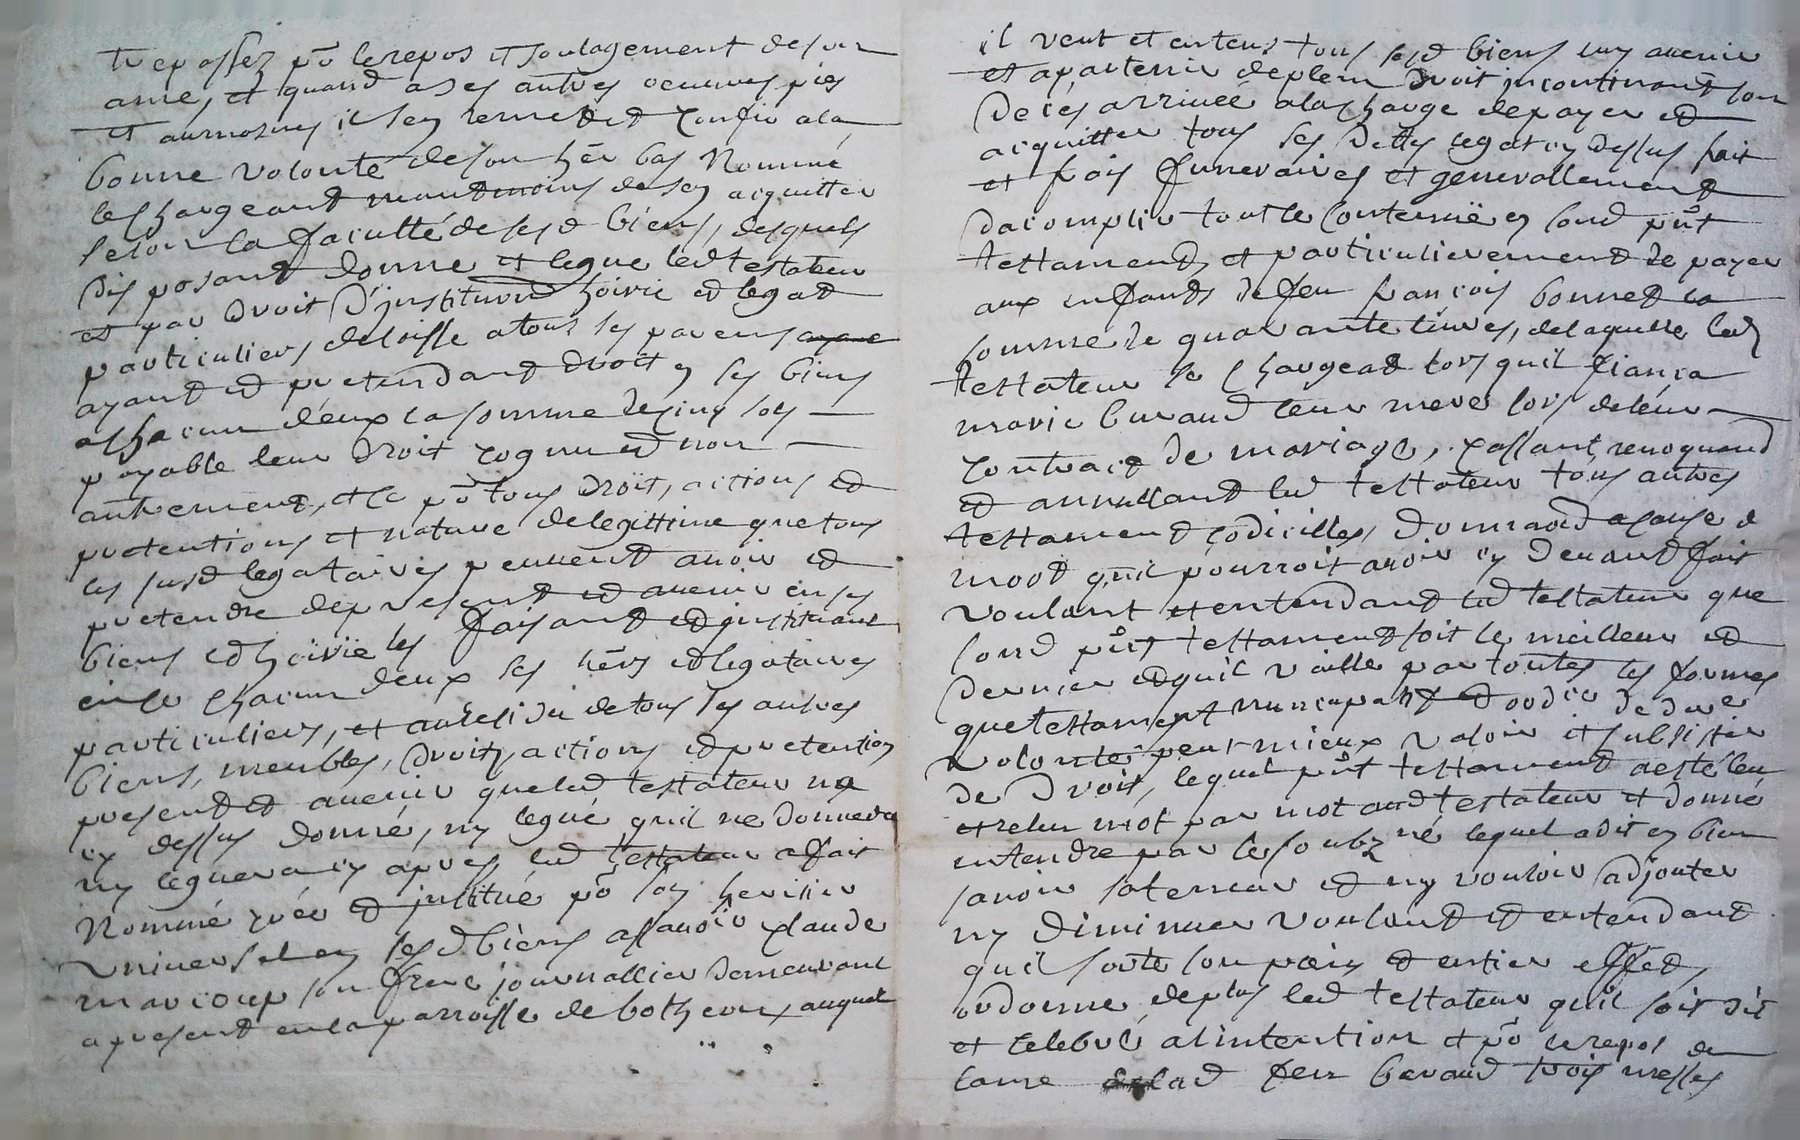 trepassez po le repos et soulagement de son
ame, et quand a ses autres oeuvres pies
et aumosnes il sen remet et confie a la
bonne volonté de son her bas nommé
le chargeant neantmoins de sen acquitter
selon la faculté de sesd biens, desquels
disposant donne et legue led testateur
et par droit d'institution hoirie et legat
particuliers delaisse a tous ses parens
ayant et pretendant droit en ses biens
a chacun deux la somme de cinq sols
payable leur droit cognu et non
autrement, et ce po tous droit, actions et
pretentions et nature de legittime que tous
les susd legataires peuvent avoir et
pretendre de present et avenir en ses
biens et hoirie les faisant et instituant
en ce chacun deux ses hers et legataires
particuliers, et au residu de tous ses autres
biens, meubles, droits, actions et pretentions
present et avenir que led testateur na
cy dessus donné, ny legué quil ne donnera
ny leguera cy apres, led testateur a fait
nommé créé et institué po son heritier
universel en sesd biens assavoir claude
marcoup son frere journallier demeurant
a present en la parroisse de botheon, auquel
il veut et entend tous sesd biens luy avenir
et apartenir de plein droit incontinant son
deces arrivée a la charge de payer et
acquitter tous ses dettes legat cy dessus fait
et frais funeraires et generallement
dacomplir tout le contenue en sond pnt
testament, et particulierement de payer
aux enfants de feu françois bonnet la
somme de quarante livres, de laquelle led
testateur se chargeat lors quil fiança
marie buraud leur mere lors de leur
contract de mariage, cassant, revoquand
et annullant led testateur tous autres
testament codicilles, donnaõn a cause de
mort quil pourroit avoir cy devant fait
voulant et entendant led testateur que
sond pnt testament soit le meilleur et
dernier et quil vaille par toutes les formes
que testament nuncupatif et ordre de dere
volonté peut mieux valoir et subsister
de droit, lequel pnt testament a esté leu
et releu mot par mot aud testateur et donné
entendre par le soubz né lequel a dit en bien
savoir la teneur et ny vouloir adjouter
ny diminuer voulant et entendant
quil sorte son plein et entier effet,
ordonne de plus led testateur quil soit dit
et celebré a lintention et po le repos de
lame de lad feu beraud trois messes